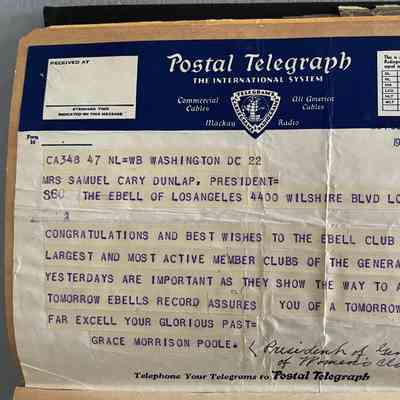 RECEIVED AT
STANDARD TIME
INDICATED ON THIS MESSAGE
Postal Telegraph
THE INTERNATIONAL SYSTEM
Commercial
Cables
All America
Cables
Mackay
Radio
Form
16
CA348 47 NL=WB WASHINGTON DC 22
MRS SAMUEL CARY DUNLAP, PRESIDENT=
THE EBELL OF LOSANGELES 4400 WILSHIRE BLVD LO
CONGRATULATIONS AND BEST WISHES TO THE EBELL CLUB
LARGEST AND MOST ACTIVE MEMBER CLUBS OF THE GENERA
YESTERDAYS ARE IMPORTANT AS THEY SHOW THE WAY TO A
TOMORROW EBELLS RECORD ASSURES YOU OF A TOMORROW
FAR EXCELL YOUR GLORIOUS PAST=
GRACE MORRISON POOLE.
President of Gen
of Women's Clu
Telephone Your Telegrams to Postal Telegraph